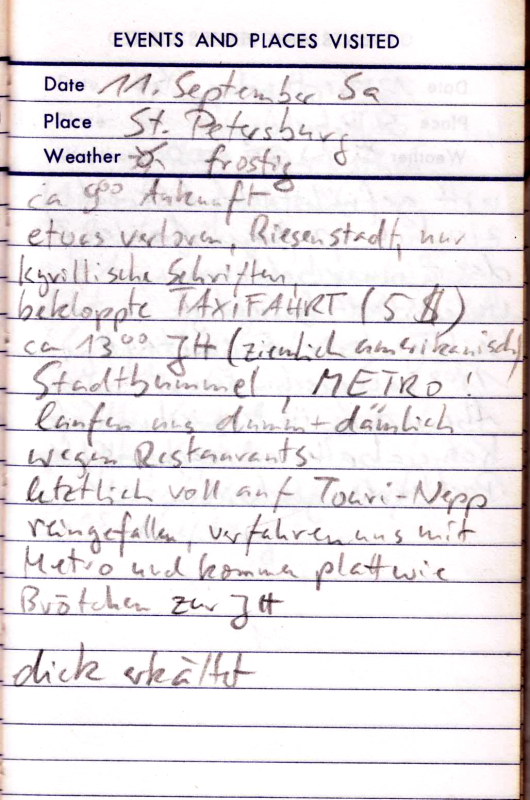 EVENTS AND PLACES VISITED
Date 11. September Sa
Place St. Petersburg
Weather frostig
ca 9⁰⁰ Ankunft
etwas verloren, Riesenstadt, nur
kyrillische Schriften,
bekloppte TAXIFAHRT (5 $)
ca 13⁰⁰ JH (ziemlich amerikanisch)
Stadtbummel, METRO!
laufen uns dumm + dämlich
wegen Restaurants.
letztlich voll auf Touri-Nepp
reingefallen, verfahren uns mit
Metro und kommen platt wie
Brötchen zur JH
dick erkältet